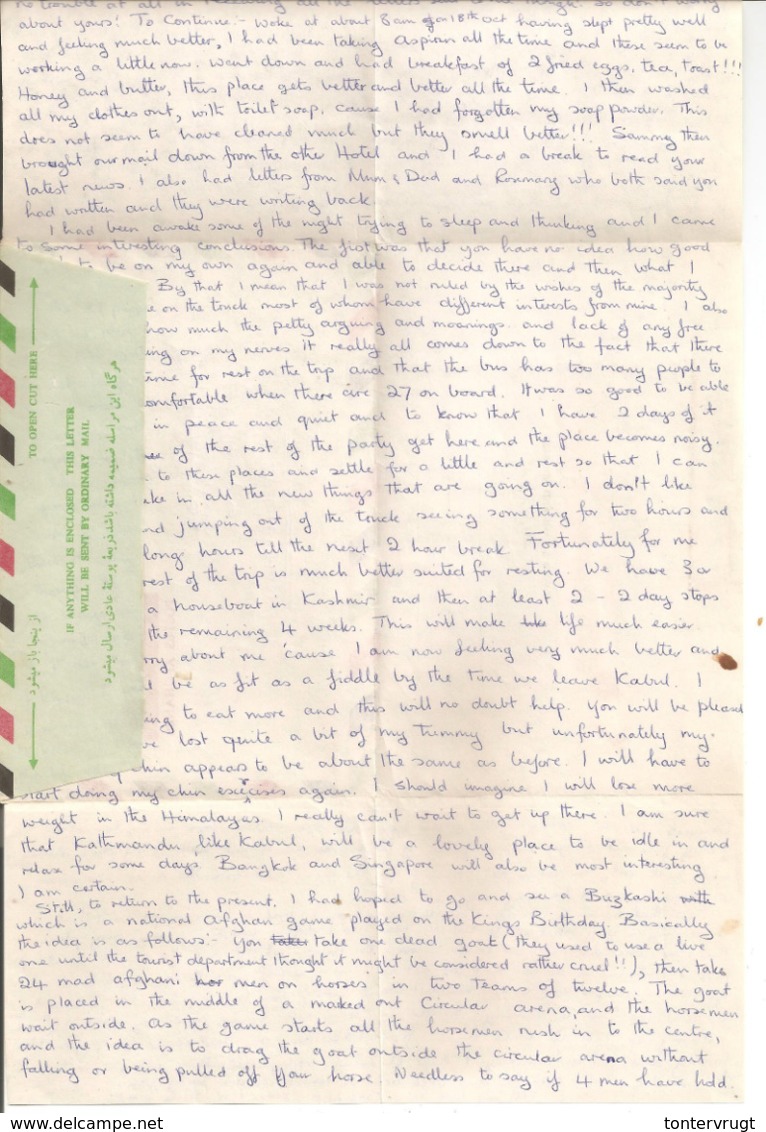 no trouble at all in receiving all the letters so don't worry
about yours! To Continue:- Woke at about 8am on 18th Oct having slept pretty well
and feeling much better, I had been taking Aspirin all the time and these seem to be
working a little now. Went down and had breakfast of 2 fried eggs, tea, toast!!!
Honey and butter, this place gets better and better all the time. I then washed
all my clothes out, with toilet soap, cause I had forgotten my soap powder. This
does not seem to have cleaned much but they smell better!!! Sammy then
brought our mail down from the other Hotel and I had a break to read your
latest news. I also had letters from Mum & Dad and Rosemary who both said you
had written and they were writing back.
I had been awake some of the night trying to sleep and thinking and I came
to some interesting conclusions. The first was that you have no idea how good
to be on my own again and able to decide there and then what I
By that I mean that I was not ruled by the wishes of the majority
on the truck most of whom have different interests from mine. I also
how much the petty arguing and moanings and lack of any free
ing on my nerves it really all comes down to the fact that there
time for rest on the trip and that the bus has too many people to
comfortable when there are 27 on board. It was so good to be able
in peace and quiet and to know that I have 2 days of it
of the rest of the party get here and the place becomes noisy.
to these places and settle for a little and rest so that I can
ke in all the new things that are going on. I don't like
nd jumping out of the truck seeing something for two hours and
long hours till the next 2 hour break Fortunately for me
rest of the trip is much better suited for resting. We have 3 or
a houseboat in Kashmir and then at least 2 - 2 day stops
the remaining 4 weeks. This will make life much easier.
rry about me 'cause I am now feeling very much better and
be as fit as a fiddle by the time we leave Kabul. I
ing to eat more and this will no doubt help. You will be pleased
ve lost quite a bit of my Tummy but unfortunately my
chin appears to be about the same as before. I will have to
start doing my chin exercises again. I should imagine I will lose more
weight in the Himalayas. I really can't wait to get up there. I am sure
that Kathmandu, like Kabul, will be a lovely place to be idle in and
relax for some days Bangkok and Singapore will also be most interesting
I am certain.
Still, to return to the present. I had hoped to go and see a Buzkashi
which is a national Afghan game played on the Kings Birthday. Basically
the idea is as follows:- You take one dead goat (they used to use a live
one until the tourist department thought it might be considered rather cruel!!), then take
24 mad afghani men on horses in two teams of twelve. The goat
is placed in the middle of a marked out Circular arena, and the horsemen
wait outside. As the game starts all the horsemen rush in to the centre,
and the idea is to drag the goat outside the circular arena without
falling or being pulled off your horse. Needless to say if 4 men have hold
TO OPEN CUT HERE
IF ANYTHING IS ENCLOSED THIS LETTER
WILL BE SENT BY ORDINARY MAIL
هر گاه این مراسله ضمیمه داشته باشد ذریعه پوسته عادی ارسال میشود
از ینجا باز میشود
tontervrugt